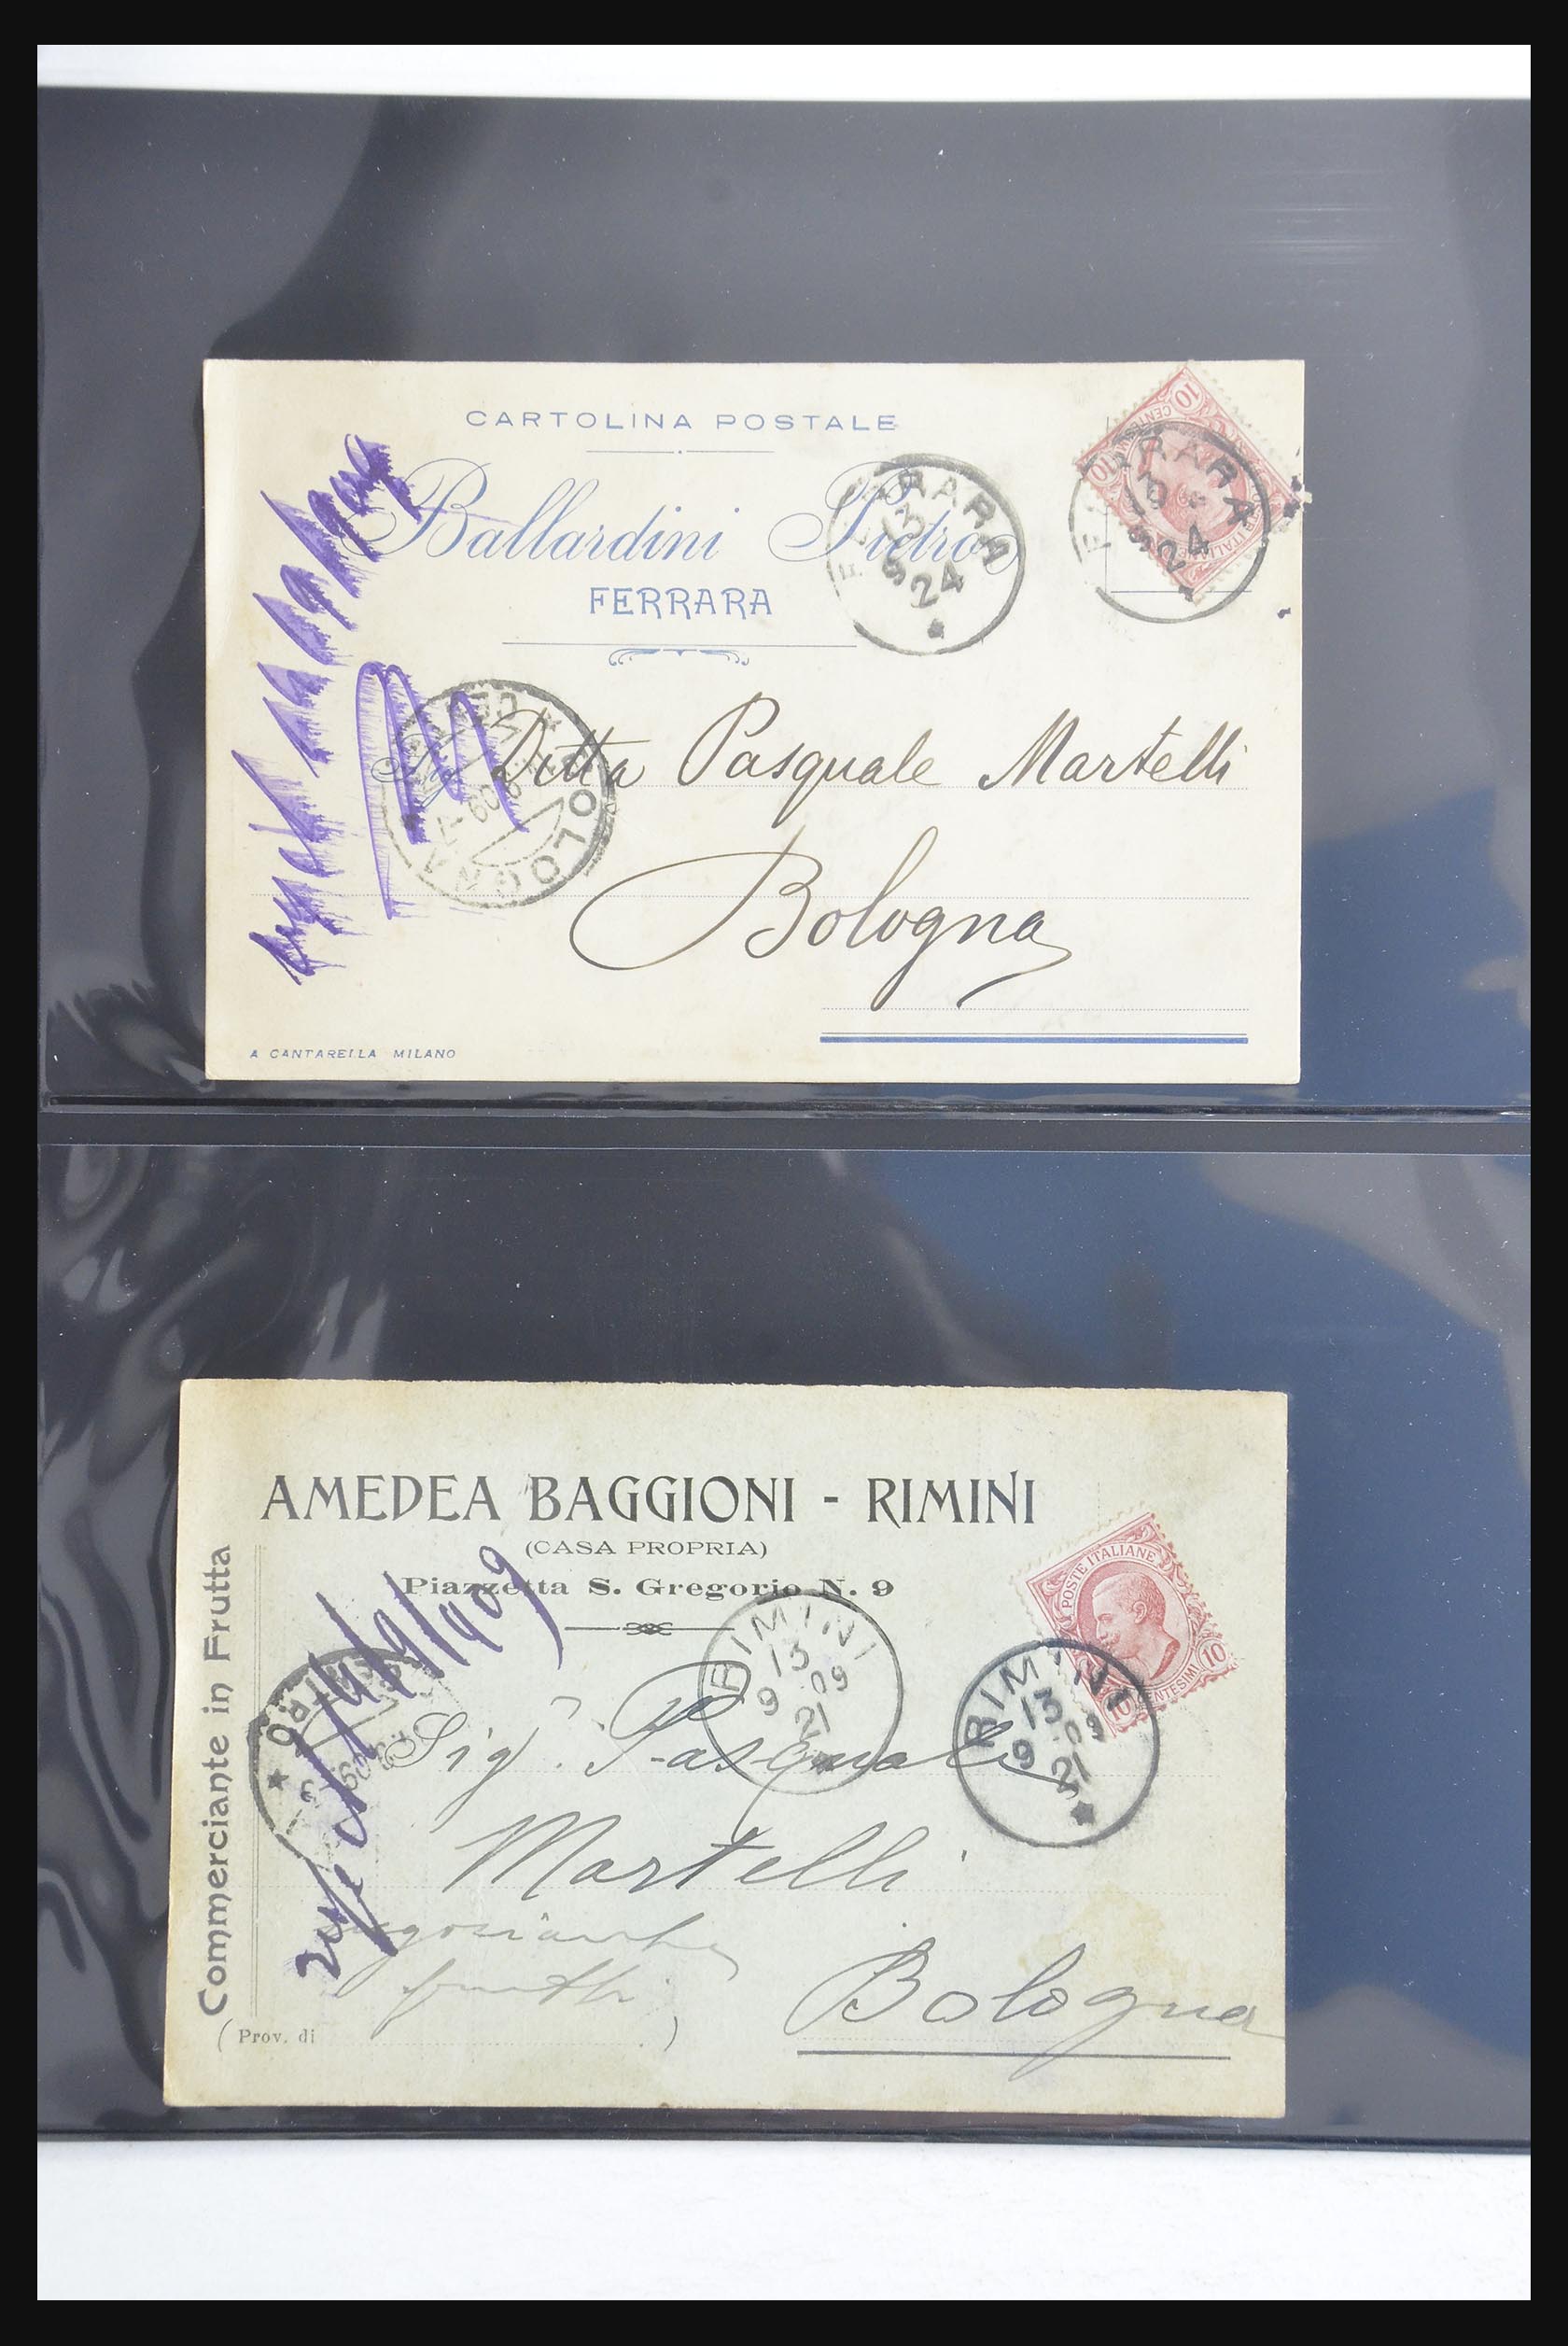 CARTOLINA POSTALE
Ballardini Pietro
FERRARA
FERRARA
13
9
24
FERRARA
13
9
24
10
10
Ditta Pasquale Martelli
BOLOGNA
Bologna
A CANTARELLA MILANO
AMEDEA BAGGIONI - RIMINI
(CASA PROPRIA)
Piazzetta S. Gregorio N. 9
Commerciante in Frutta
POSTE ITALIANE
10
10
CENTESIMI
RIMINI
13
9 09
21
RIMINI
13
9 09
21
Sig. Pasquale
Martelli
Bologna
(Prov. di )